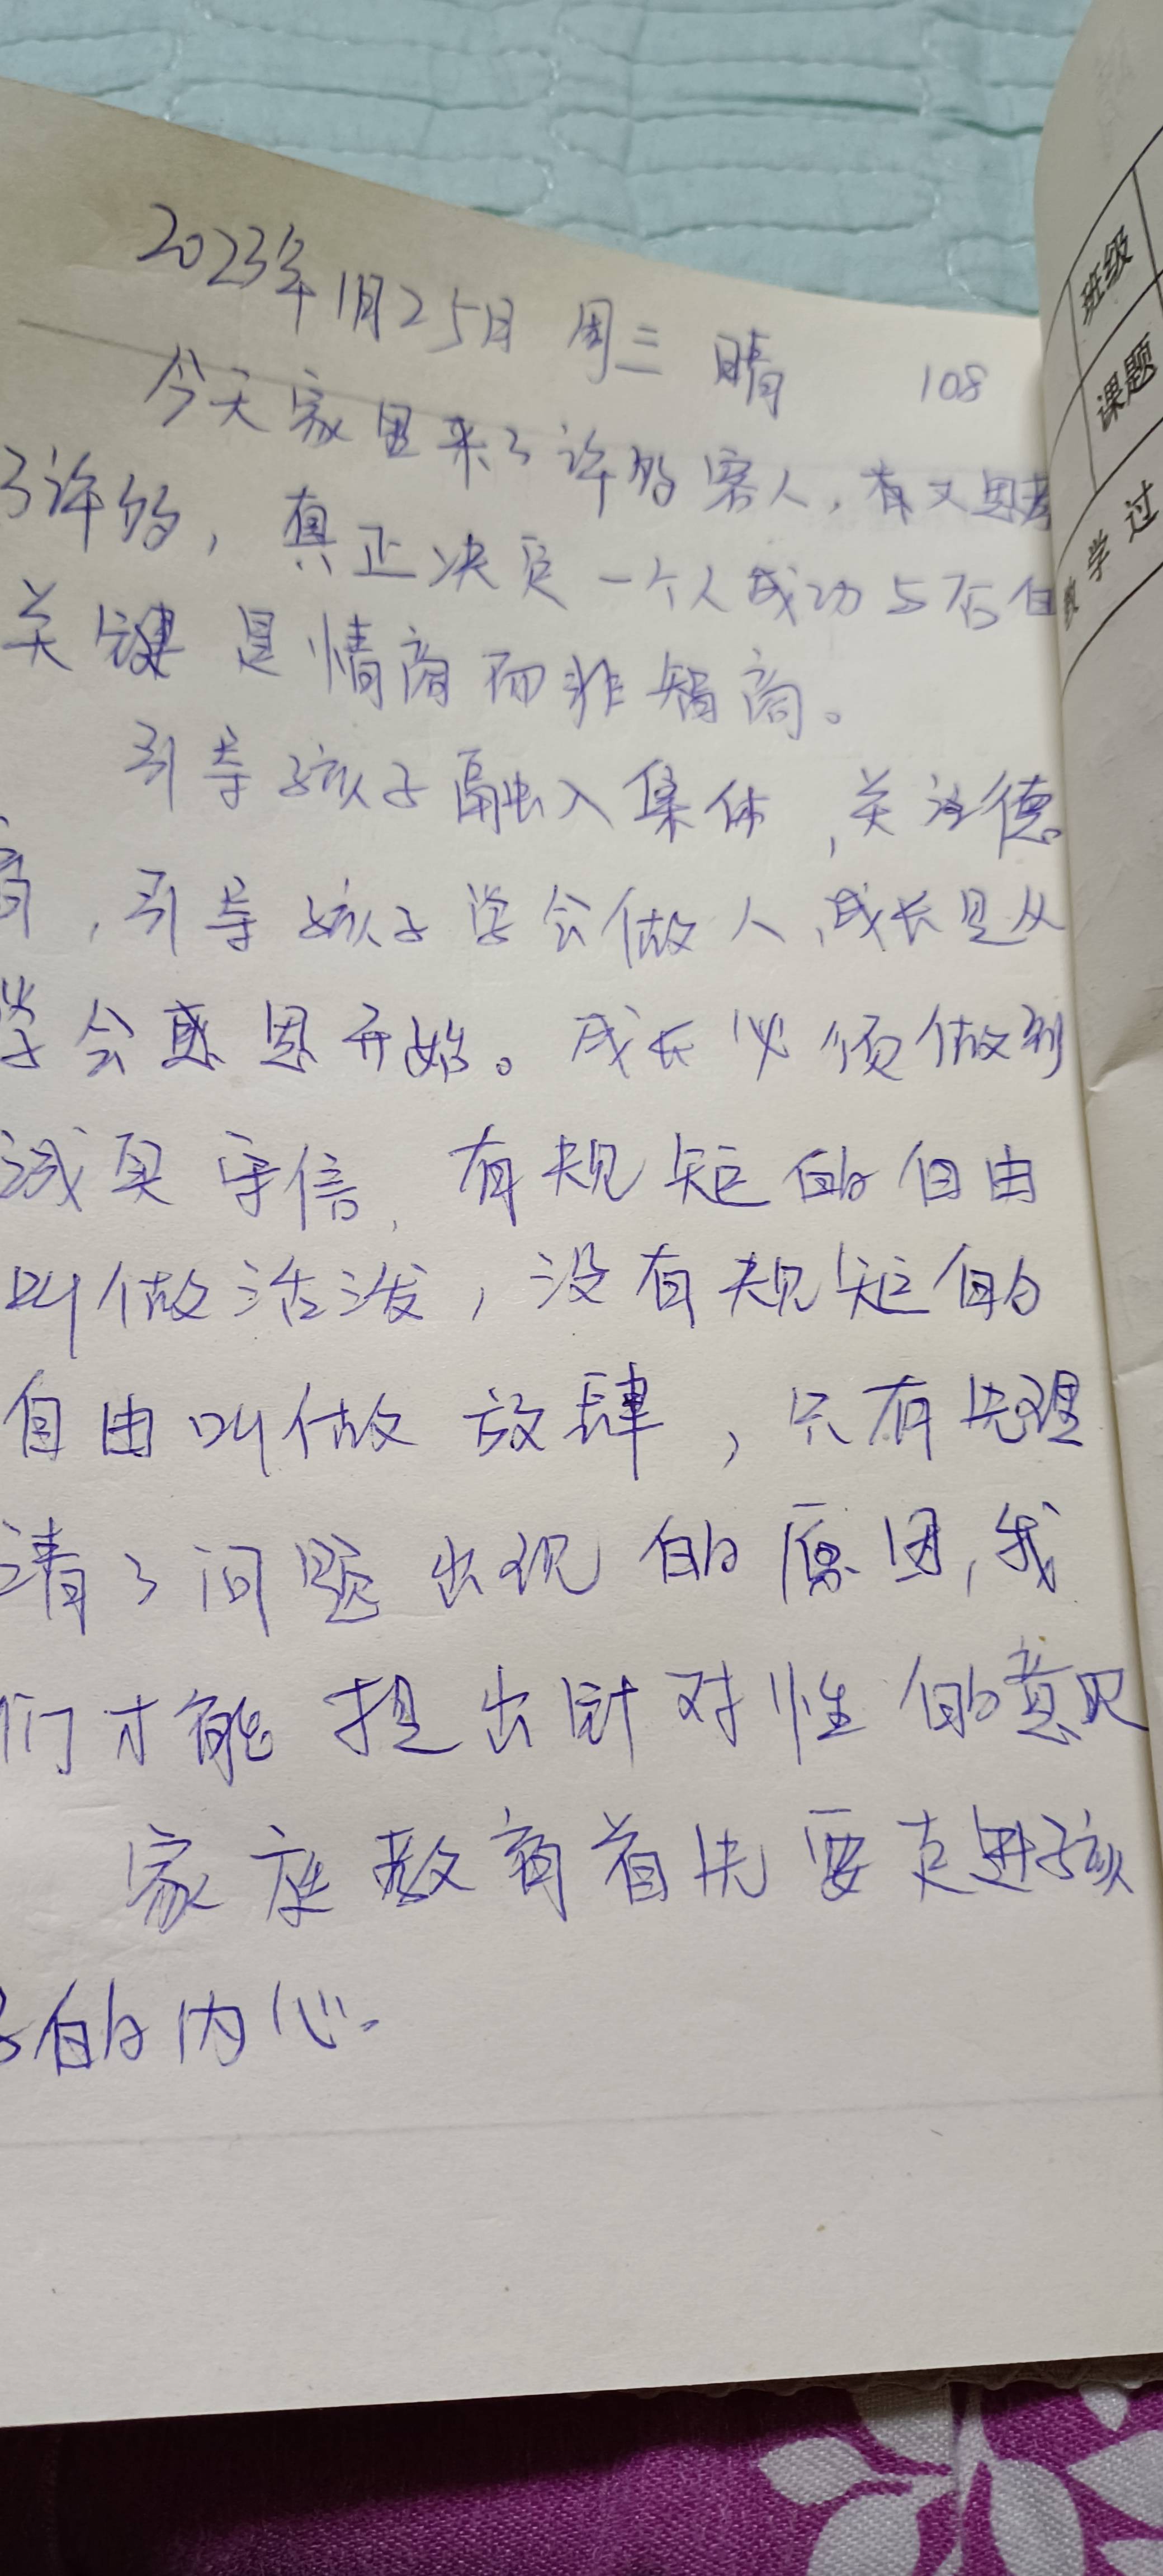 2023年1月25日 周三 晴 108
今天家里来了许多客人,有又思考
了许多,真正决定一个人成功与否的
关键是情商而非智商。
引导孩子融入集体,关注德
育,引导孩子学会做人,成长是从
学会感恩开始。成长必须做到
诚实守信,有规矩的自由
叫做活泼,没有规矩的
自由叫做放肆,只有先理
清了问题出现的原因,我
们才能提出针对性的意见
家庭教育首先要走进孩
子的内心.
班级
课题
教学过